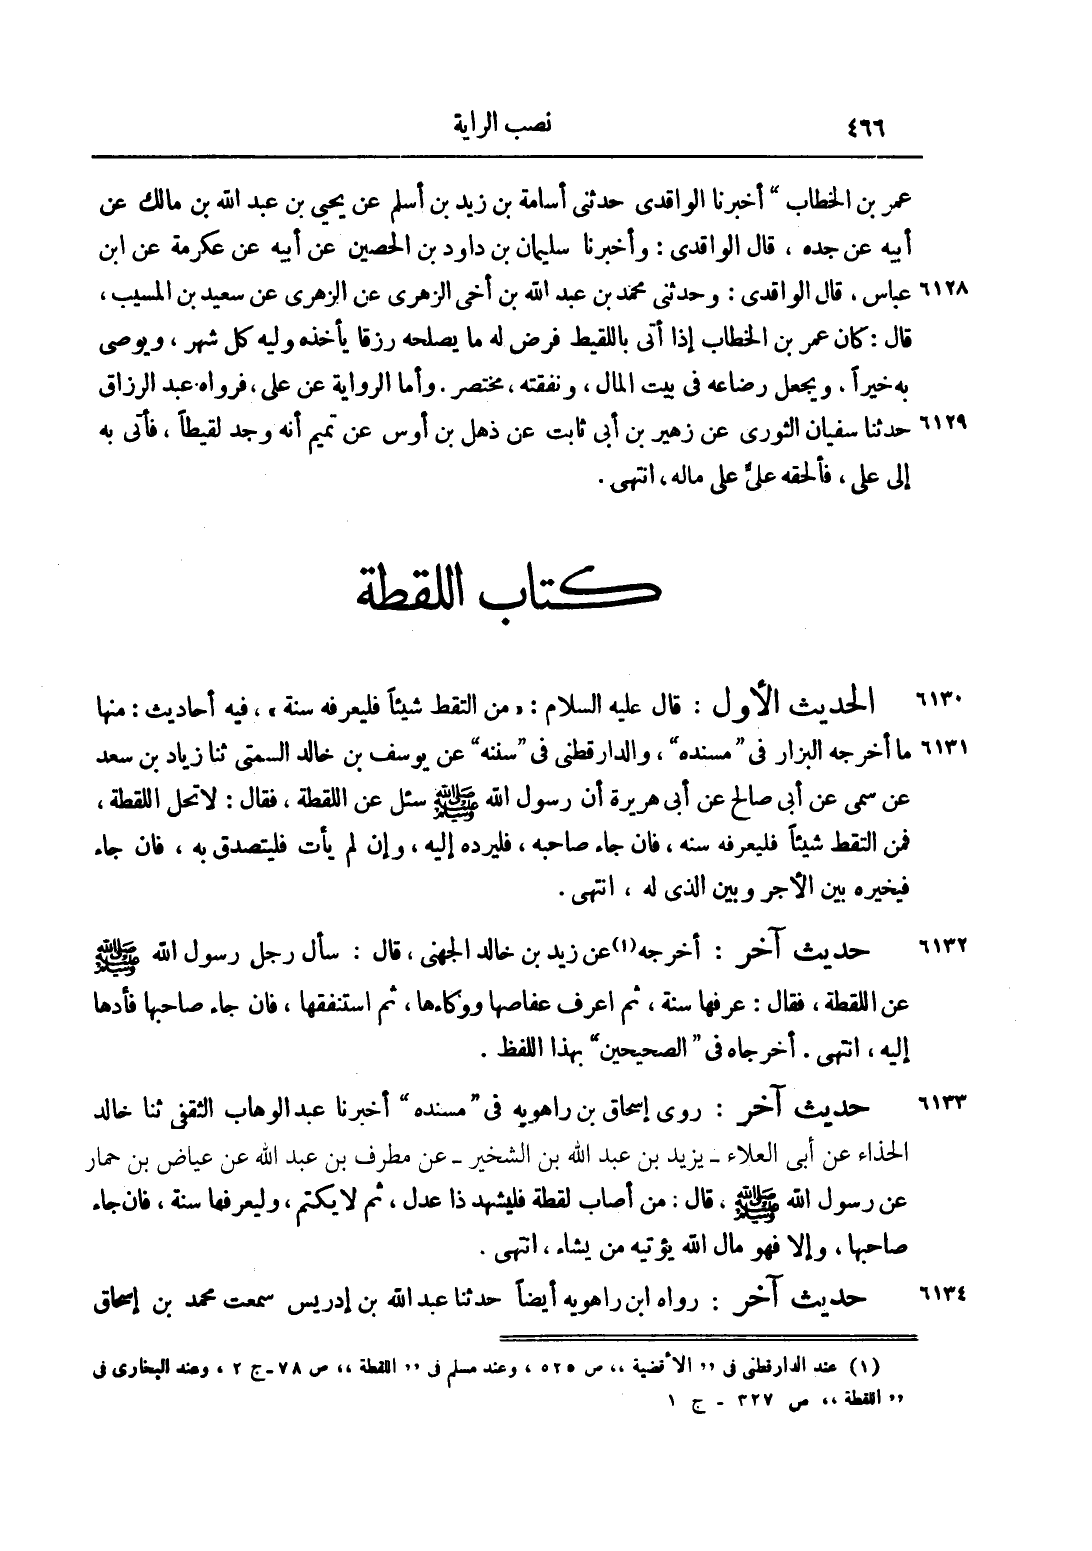 ٤٦٦ نصب الراية
عمر بن الخطاب “ أخبرنا الواقدى حدثنى أسامة بن زيد بن أسلم عن يحيى بن عبد الله بن مالك عن
أبيه عن جده ، قال الواقدى : وأخبرنا سليمان بن داود بن الحصين عن أبيه عن عكرمة عن ابن
٦١٢٨ عباس ، قال الواقدى : وحدثنى محمد بن عبد الله بن أخى الزهرى عن الزهرى عن سعيد بن المسيب ،
قال : كان عمر بن الخطاب إذا أتى باللقيط فرض له ما يصلحه رزقا يأخذه وليه كل شهر ، ويوصى
به خيراً ، ويجعل رضاعه فى بيت المال ، ونفقته ، مختصر . وأما الرواية عن على ، فرواه عبد الرزاق
٦١٢٩ حدثنا سفيان الثورى عن زهير بن أبى ثابت عن ذهل بن أوس عن تميم أنه وجد لقيطاً ، فأتى به
إلى على ، فألحقه علىٌّ على ماله ، انتهى .
كتاب اللقطة
٦١٣٠ الحديث الأول : قال عليه السلام : « من التقط شيئاً فليعرفه سنة » ، فيه أحاديث : منها
٦١٣١ ما أخرجه البزار فى ” مسنده “ ، والدارقطنى فى ” سننه “ عن يوسف بن خالد السمتى ثنا زياد بن سعد
عن سمى عن أبى صالح عن أبى هريرة أن رسول الله ﷺ سئل عن اللقطة ، فقال : لا تحل اللقطة ،
فمن التقط شيئاً فليعرفه سنه ، فان جاء صاحبه ، فليرده إليه ، وإن لم يأت فليتصدق به ، فان جاء
فيخيره بين الأجر وبين الذى له ، انتهى .
٦١٣٢ حديث آخر : أخرجه (١) عن زيد بن خالد الجهنى ، قال : سأل رجل رسول الله ﷺ
عن اللقطة ، فقال : عرفها سنة ، ثم اعرف عفاصها ووكاءها ، ثم استنفقها ، فان جاء صاحبها فأدها
إليه ، انتهى . أخرجاه فى ” الصحيحين “ بهذا اللفظ .
٦١٣٣ حديث آخر : روى إسحاق بن راهويه فى ” مسنده “ أخبرنا عبد الوهاب الثقفى ثنا خالد
الحذاء عن أبى العلاء ـ يزيد بن عبد الله بن الشخير ـ عن مطرف بن عبد الله عن عياض بن حمار
عن رسول الله ﷺ ، قال : من أصاب لقطة فليشهد ذا عدل ، ثم لا يكتم ، وليعرفها سنة ، فان جاء
صاحبها ، وإلا فهو مال الله يؤتيه من يشاء ، انتهى .
٦١٣٤ حديث آخر : رواه ابن راهويه أيضاً حدثنا عبد الله بن إدريس سمعت محمد بن إسحاق
(١) عند الدارقطنى فى ,, الأقضية ,, ص ٥٢٥ ، وعند مسلم فى ,, اللقطة ,, ص ٧٨ ـ ج ٢ ، وعند البخارى فى
,, اللقطة ,, ص ٣٢٧ ـ ج ١